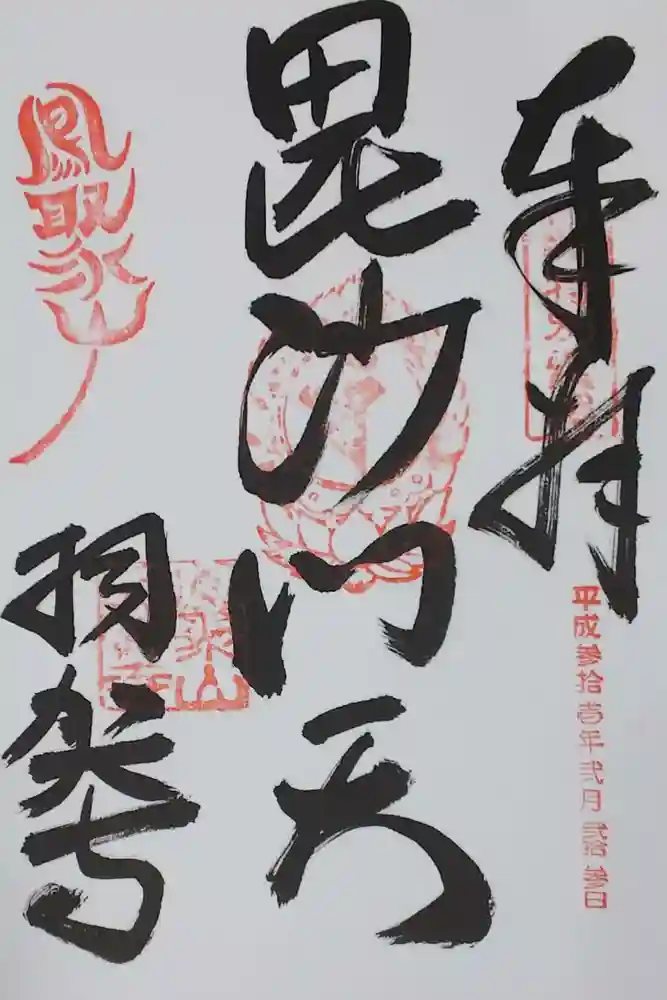 奉拝
平成参拾壱年弐月弐拾参日
毘沙門天
鳳聚山
羽賀寺